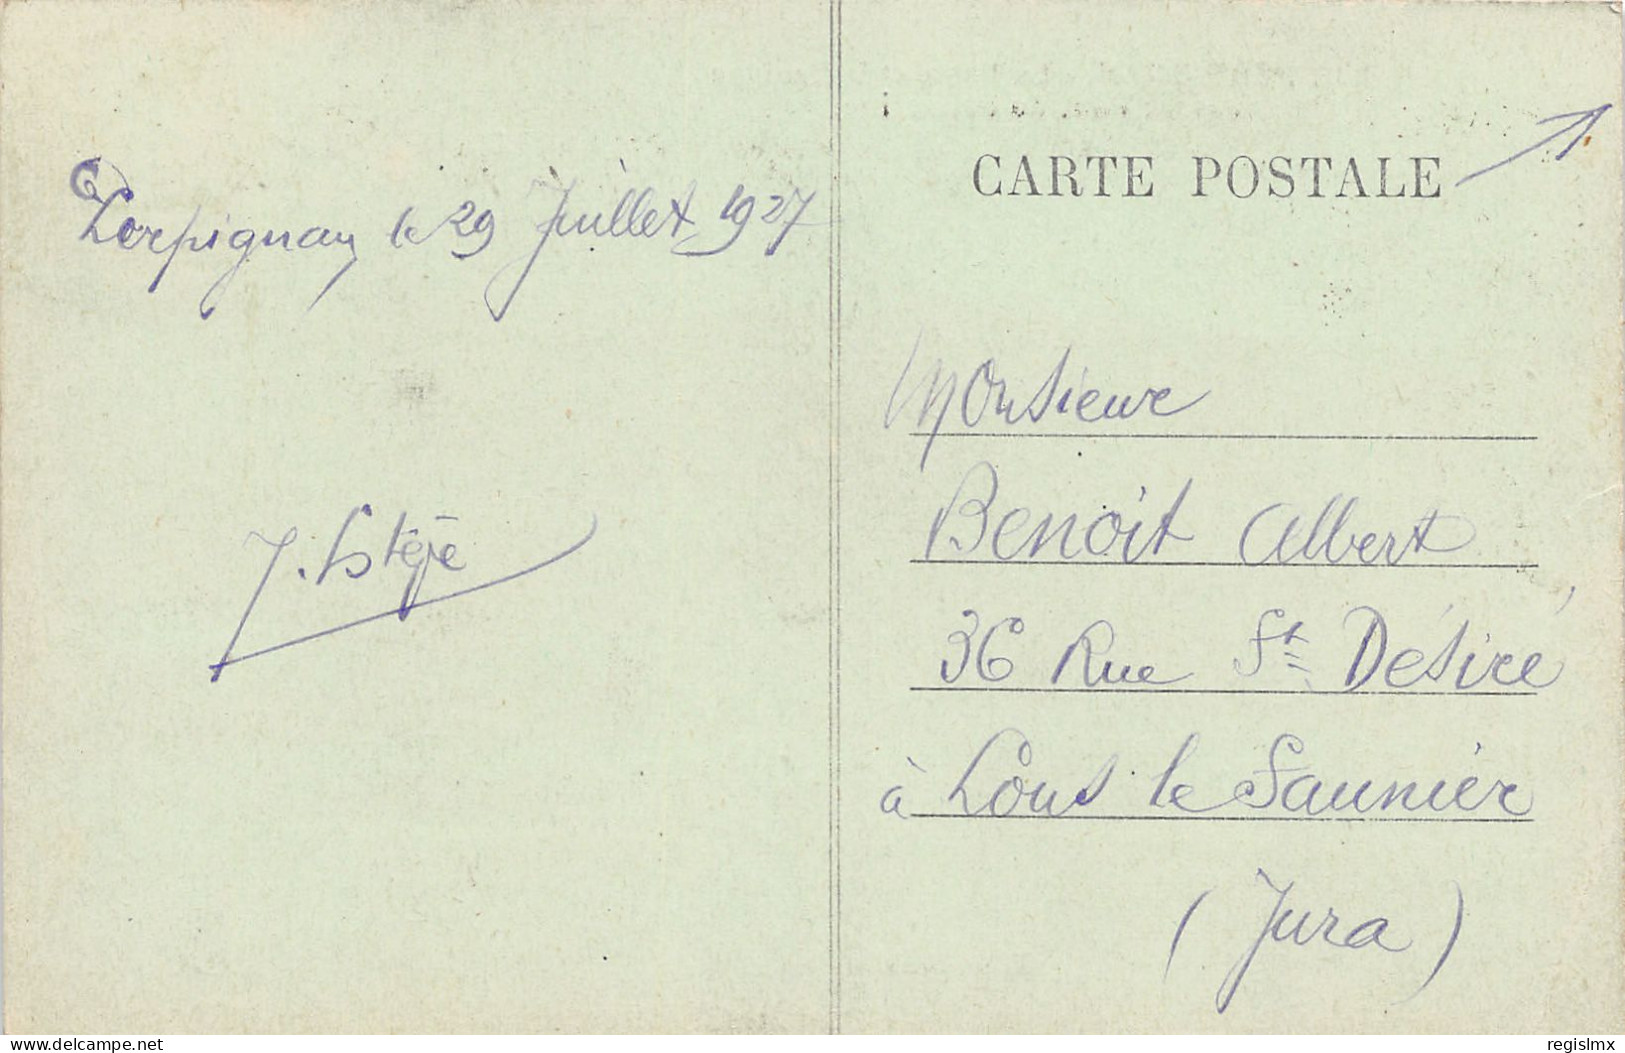 Perpignan, le 29 Juillet 1927
CARTE POSTALE
Monsieur
Benoit Albert
36 Rue St Désiré
à Lons le Saunier
(Jura)
delcampe.net
regislmx